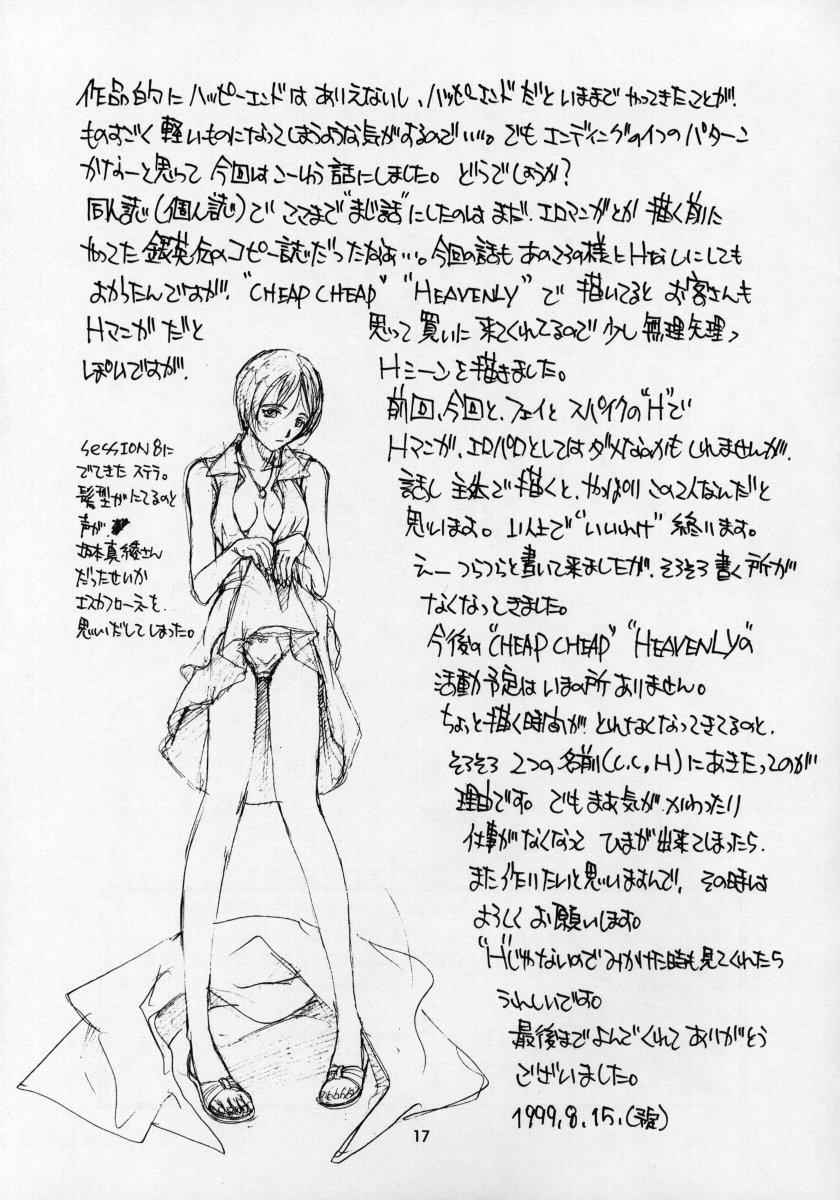 作品的にハッピーエンドはありえないし、ハッピーエンドだといままでやってきたことが、
ものすごく軽いものになってしまうような気がするので…。でもエンディングの1つのパターン
かなーと思って今回はこーいう話にしました。どうでしょうか?
同人誌(個人誌)でここまで"まじ話"にしたのはまだ、エロマンガとか描く前に
やってた銀英伝のコピー誌だったなぁ…。今回の話もあのころの様にHなしにしても
よかったんですが、"CHEAP CHEAP" "HEAVENLY"で描いてるとお客さんも
Hマンガだと思って買いに来てくれてるので少し無理矢理っ
ぽいですが、Hシーンを描きました。
前回、今回と、フェイとスパイクの"H"で
Hマンガ、エロパロとしてはダメなのかもしれませんが、
話し主体で描くと、やっぱりこの2人なんだと
思います。以上で"いいわけ"終ります。
えーつらつらと書いて来ましたが、そろそろ書く所が
なくなってきました。
今後の"CHEAP CHEAP" "HEAVENLY"の
活動予定はいまの所ありません。
ちょっと描く時間が、とれなくなってきてるのと、
そろそろ2つの名前(C.C,H)にあきたってのが
理由です。でもまあ気が、かわったり
仕事がなくなって ひまが出来てしまったら、
また作りたいと思いますんで、その時は
よろしくお願いします。
"H"じゃないのでみかけた時も見てくれたら
うれしいです。
最後までよんでくれてありがとう
ございました。
1999.8.15.
SESSION8に
でてきたステラ。
髪型がにてるのと
声が、
坂本真綾さん
だったせいか
エスカフローネを、
思いだしてしまった。
17